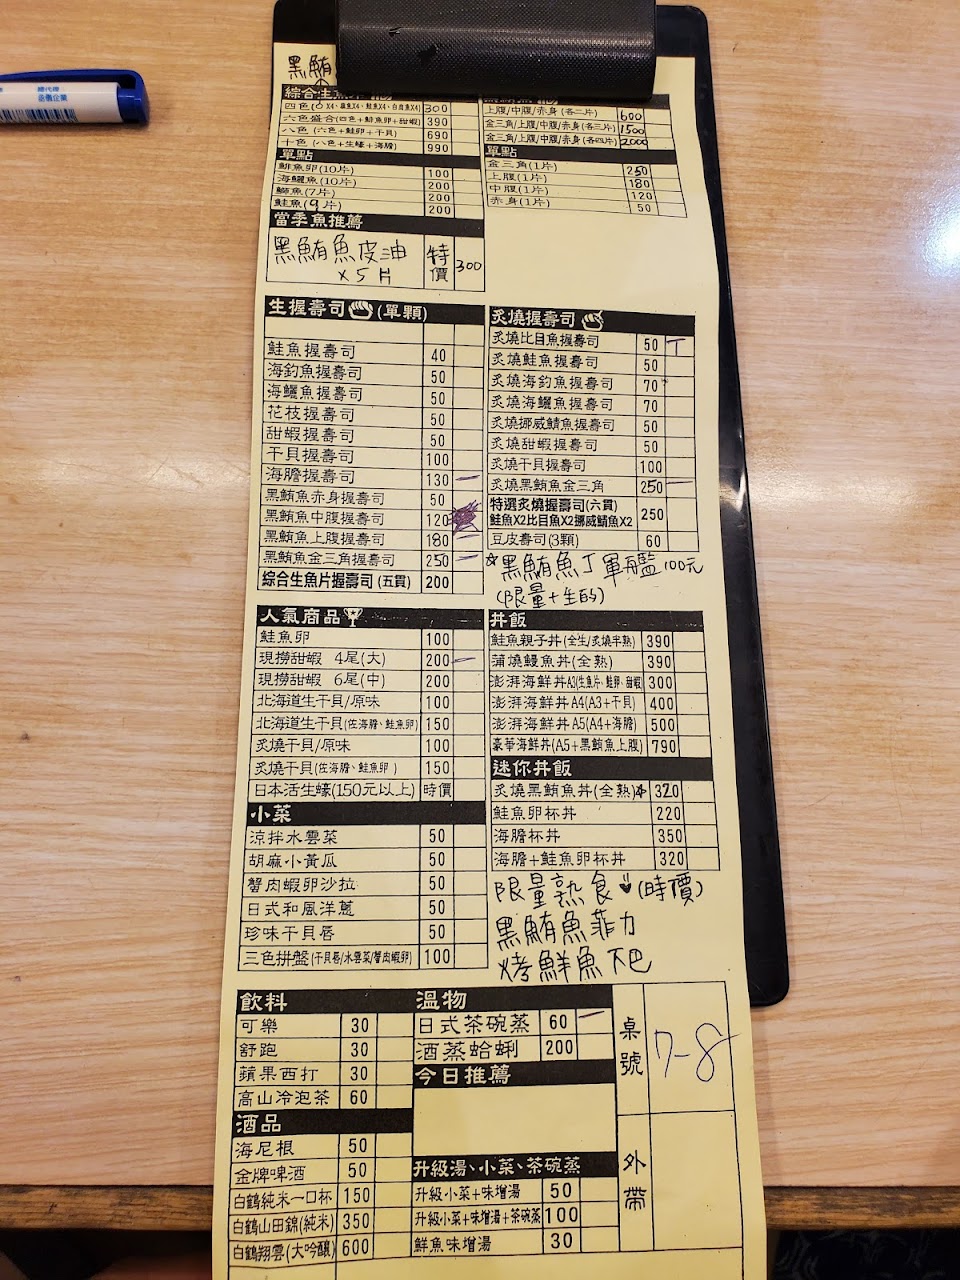 總代理
岳信企業
黑鮪
四色
300
六色盛合(四色+鮭魚卵+甜蝦) 390
八色 (六色+鮭卵+干貝) 690
十色 (八色+生蠔+海膽) 990
單點
鯡魚卵(10片) 100
海鱺魚(10片) 200
鰤魚(7片) 200
鮭魚(9片) 200
當季魚推薦
黑鮪魚皮油
x5片
特價 300
上腹/中腹/赤身(各二片) 600
金三角/上腹/中腹/赤身(各三片) 1500
金三角/上腹/中腹/赤身(各四片) 2000
單點
金三角(1片) 250
上腹(1片) 180
中腹(1片) 120
赤身(1片) 50
生握壽司(單顆)
鮭魚握壽司 40
海釣魚握壽司 50
海鱺魚握壽司 50
花枝握壽司 50
甜蝦握壽司 50
干貝握壽司 100
海膽握壽司 130
黑鮪魚赤身握壽司 50
黑鮪魚中腹握壽司 120
黑鮪魚上腹握壽司 180
黑鮪魚金三角握壽司 250
綜合生魚片握壽司 (五貫) 200
炙燒握壽司
炙燒比目魚握壽司 50
炙燒鮭魚握壽司 50
炙燒海釣魚握壽司 70
炙燒海鱺魚握壽司 70
炙燒挪威鯖魚握壽司 50
炙燒甜蝦握壽司 50
炙燒干貝握壽司 100
炙燒黑鮪魚金三角 250
特選炙燒握壽司(六貫)
鮭魚X2比目魚X2挪威鯖魚X2 250
豆皮壽司(3顆) 60
☆黑鮪魚丁軍艦100元
(限量+生的)
人氣商品
鮭魚卵 100
現撈甜蝦 4尾(大) 200
現撈甜蝦 6尾(中) 200
北海道生干貝/原味 100
北海道生干貝(佐海膽、鮭魚卵) 150
炙燒干貝/原味 100
炙燒干貝(佐海膽、鮭魚卵) 150
日本活生蠔(150元以上) 時價
小菜
涼拌水雲菜 50
胡麻小黃瓜 50
蟹肉蝦卵沙拉 50
日式和風洋蔥 50
珍味干貝唇 50
三色拼盤(干貝唇/水雲菜/蟹肉蝦卵) 100
丼飯
鮭魚親子丼(全生/炙燒半熟) 390
蒲燒鰻魚丼(全熟) 390
澎湃海鮮丼A3(生魚片、鮭卵、甜蝦) 300
澎湃海鮮丼A4(A3+干貝) 400
澎湃海鮮丼A5(A4+海膽) 500
豪華海鮮丼(A5+黑鮪魚上腹) 790
迷你丼飯
炙燒黑鮪魚丼(全熟) 320
鮭魚卵杯丼 220
海膽杯丼 350
海膽+鮭魚卵杯丼 320
限量熟食 (時價)
黑鮪魚菲力
烤鮮魚下巴
飲料
可樂 30
舒跑 30
蘋果西打 30
高山冷泡茶 60
酒品
海尼根 50
金牌啤酒 50
白鶴純米一口杯 150
白鶴山田錦(純米) 350
白鶴翔雲(大吟釀) 600
溫物
日式茶碗蒸 60
酒蒸蛤蜊 200
今日推薦
升級湯、小菜、茶碗蒸
升級小菜+味增湯 50
升級小菜+味增湯+茶碗蒸 100
鮮魚味增湯 30
桌號 7-8
外帶